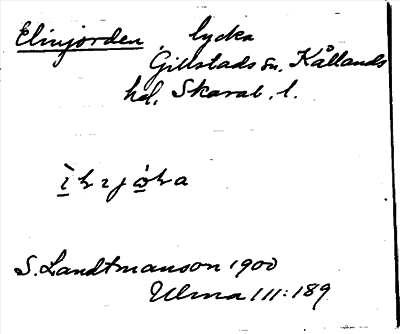 Elinjorden, lycka
Gillstads sn. Kållands
hd. Skarab. l.
S. Landtmanson 1900
Ulma 111:189